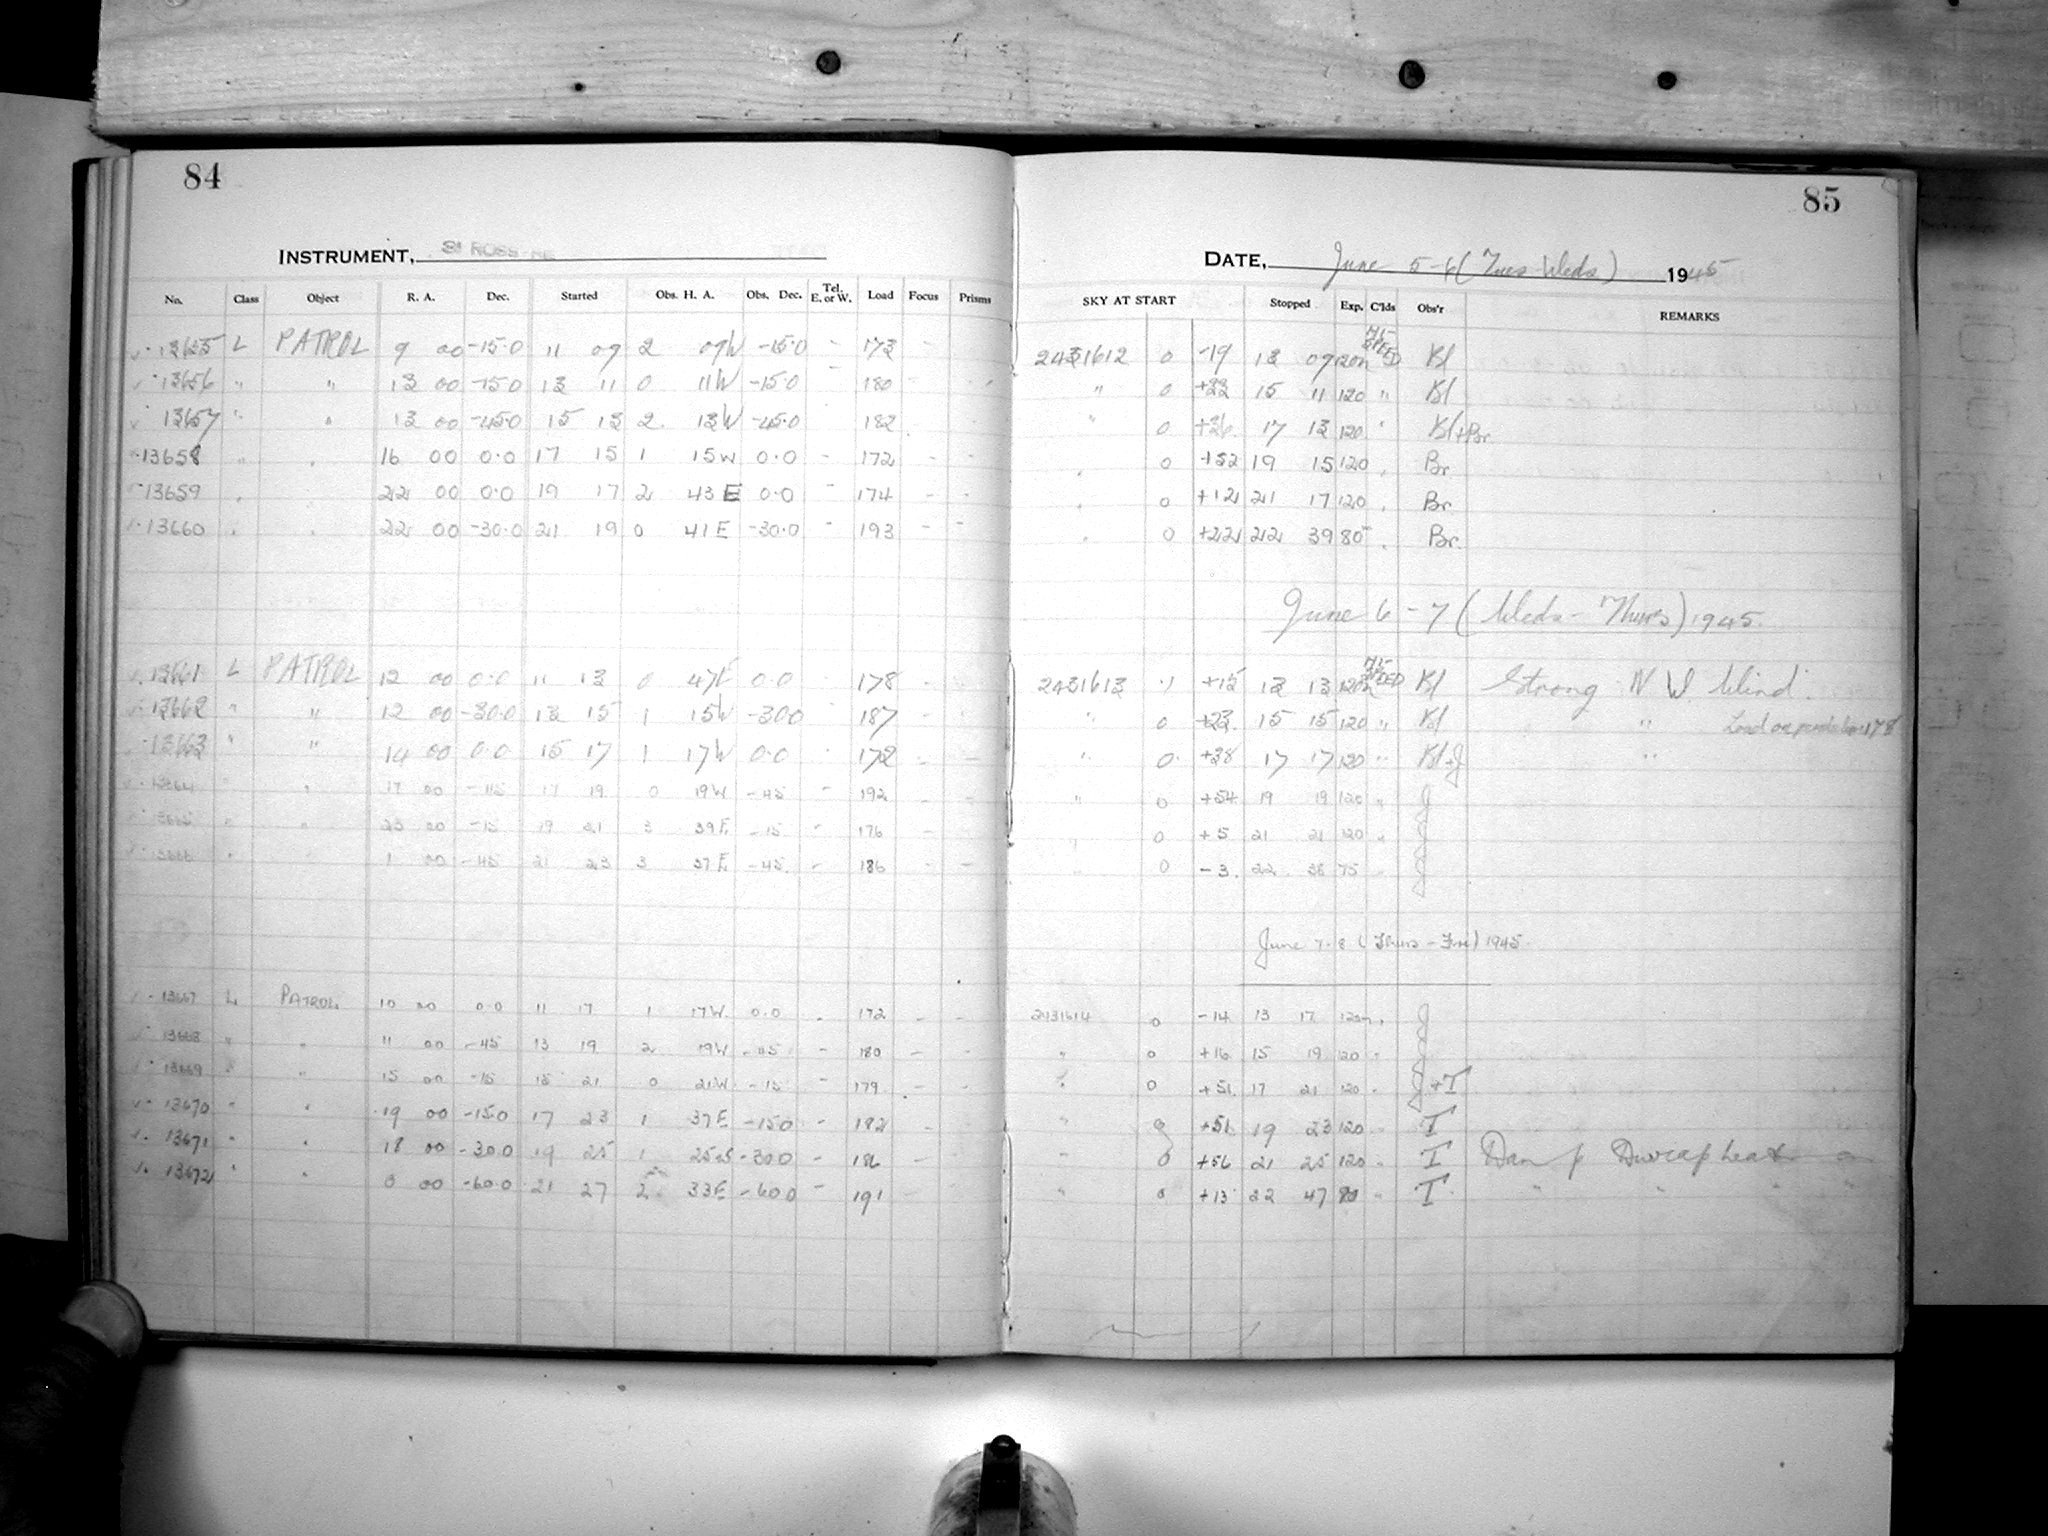 84
INSTRUMENT,
No. Class Object R. A. Dec. Started Obs. H. A. Obs. Dec. Tel. E. or W. Load Focus Prisms
13655 L PATROL 9 00 -15.0 11 09 2 09W -15.0 - 173 -
13656 " " 13 00 -15.0 13 11 0 11W -15.0 - 180 -
13657 " " 13 00 -45.0 15 13 2 13W -45.0 182
13658 " " 16 00 0.0 17 15 1 15W 0.0 - 172 - -
13659 " " 22 00 0.0 19 17 2 43E 0.0 174 - -
13660 " " 22 00 -30.0 21 19 0 41E -30.0 - 193 - -
13661 L PATROL 12 00 0.0 11 13 0 47E 0.0 178 -
13662 " " 12 00 -30.0 13 15 1 15W -30.0 187 -
13663 " " 14 00 0.0 15 17 1 17W 0.0 172 - -
13664 " " 17 00 -45 17 19 0 19W -45 - 192 - -
13665 " " 23 00 -15 19 21 3 39E -15 - 176 -
13666 " " 1 00 -45 21 23 3 37E -45 - 186 - -
13667 L PATROL 10 00 0.0 11 17 1 17W 0.0 - 172 - -
13668 " " 11 00 -45 13 19 2 19W - 180 - -
13669 " " 15 00 -15 15 21 0 21W -15 - 179 - -
13670 " " 19 00 -15.0 17 23 1 37E -15.0 - 182 - -
13671 " " 18 00 -30.0 19 25 1 -30.0 - 186 - -
13672 " " 0 00 -60.0 21 27 2 33E -60.0 - 191 - -
85
DATE, June 5-6 (Tues-Weds) 1945
SKY AT START Stopped Exp. C'lds Obs'r REMARKS
2431612 0 -19 13 09 120m HI-SPEED Bl
" 0 +33 15 11 120 " Bl
" 0 +26 17 13 120 " Bl+Br
" 0 +52 19 15 120 " Br
" 0 +12 21 17 120 " Br
" 0 +22 22 39 80 " Br.
June 6-7 (Weds-Thurs) 1945.
2431613 .1 +15 13 13 120m HI-SPEED Bl Strong N W Wind.
" 0 +23 15 15 120 " Bl " Load on pendulum 178
" 0 +38 17 17 120 " Bl+J "
" 0 +54 19 19 120 " J
" 0 +5 21 21 120 " J
" 0 -3 22 38 75 " J
June 7-8 (Thurs-Fri) 1945.
2431614 0 -14 13 17 120m " J
" 0 +16 15 19 120 " J
" 0 +51 17 21 120 " J+T
" 0 +51 19 23 120 " T
" 0 +56 21 25 120 " T Damp Dewcap heat on
" 0 +13 22 47 80 " T " " " "